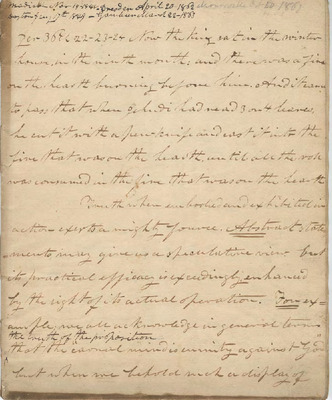 Jer 36th 22-23-24 Now the king sat in the winter
house, in the ninth month; and there was a fire
on the hearth burning before him. And it came
to pass that when Jehudi had read 3 or 4 leaves
he cut it with a penknife and cast it into the
fire that was on the hearth, until all the roll
was consumed in the fire that was on the hearth
Truth when embodied and exhibited in
action exerts a mighty force. Abstract state
ments may give us a speculative view but
its practical efficacy is exceedingly enhanced
by the sight of its actual operation. For ex
ample, we all acknowledge in general terms
the truth of the proposition
that the carnal mind is enmity against God
but when we behold such a display of